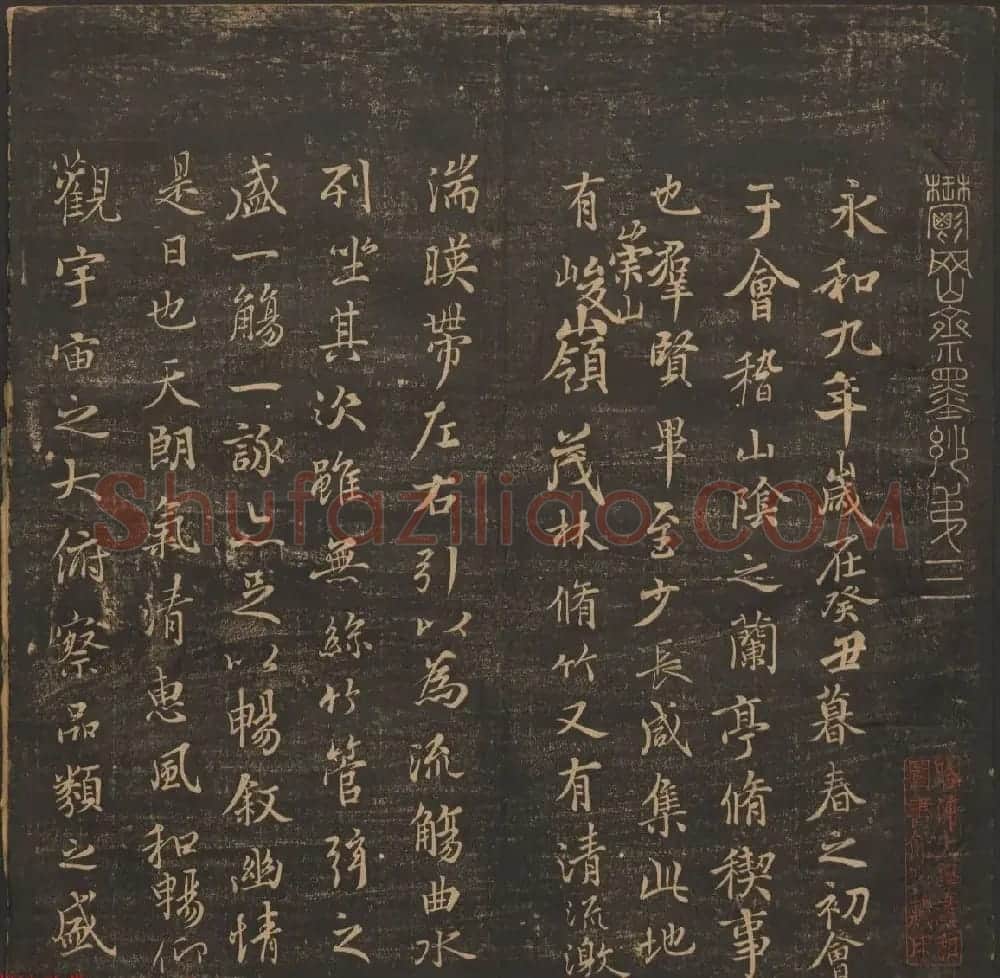 鬱岡齋墨妙弟三
永和九年歲在癸丑暮春之初會
于會稽山陰之蘭亭脩稧事
也羣賢畢至少長咸集此地
有崇山峻嶺茂林脩竹又有清流激
湍暎帶左右引以為流觴曲水
列坐其次雖無絲竹管弦之
盛一觴一詠亦足以暢叙幽情
是日也天朗氣清惠風和暢仰
觀宇宙之大俯察品類之盛
Shufaziliao.COM